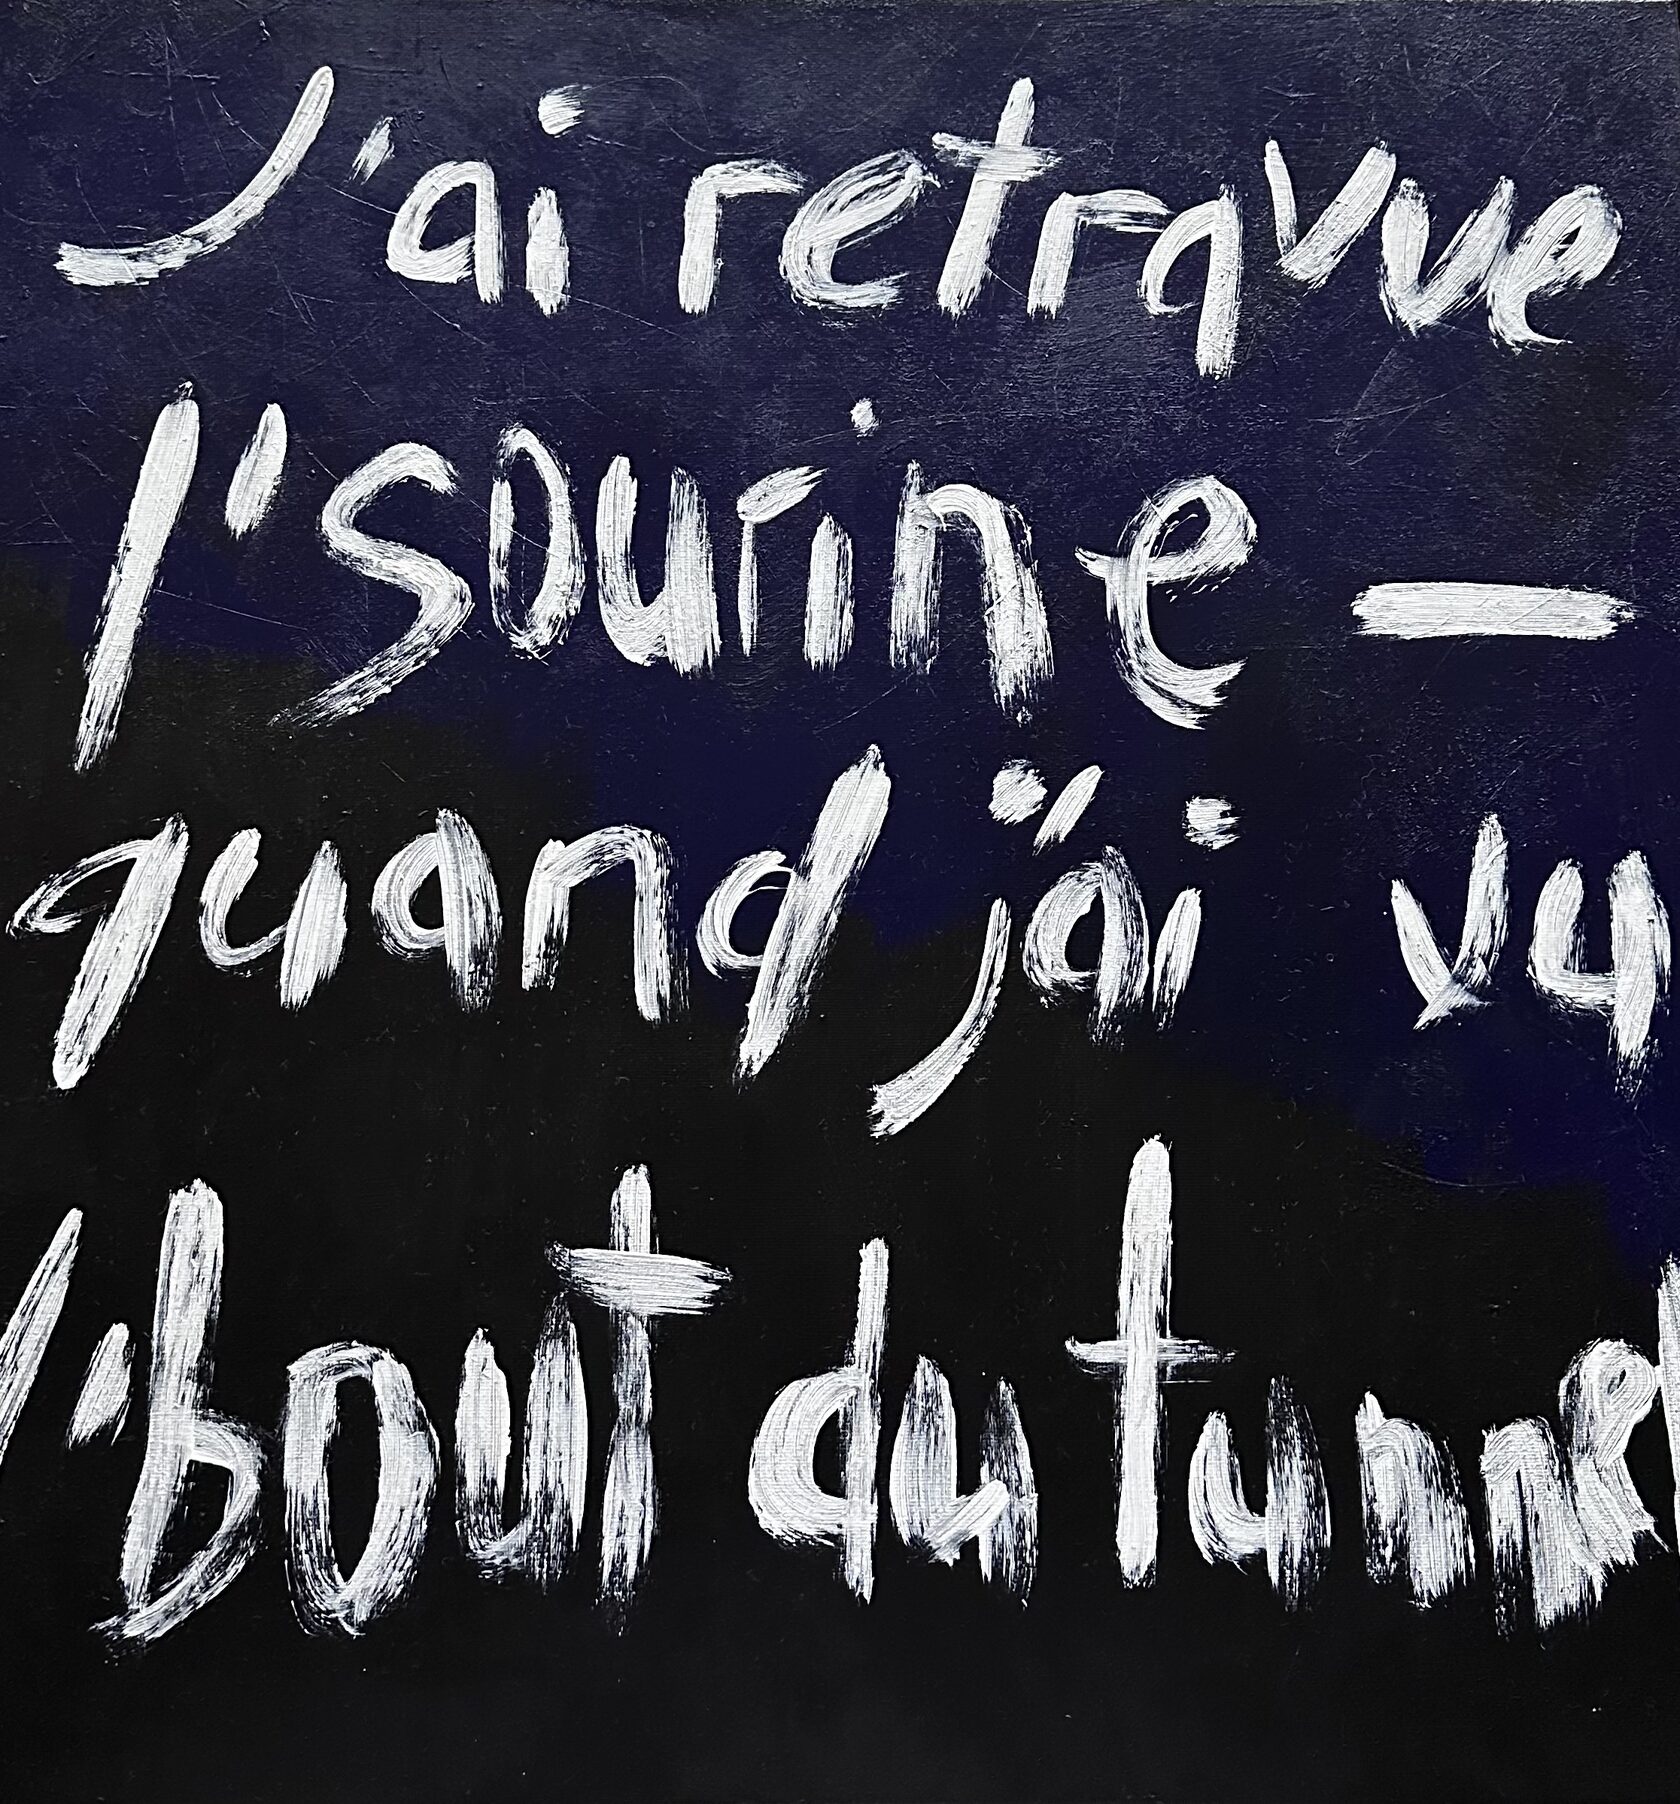 J'ai retravue
l'sourine —
quand j'ai vu
l'bout du tunnel